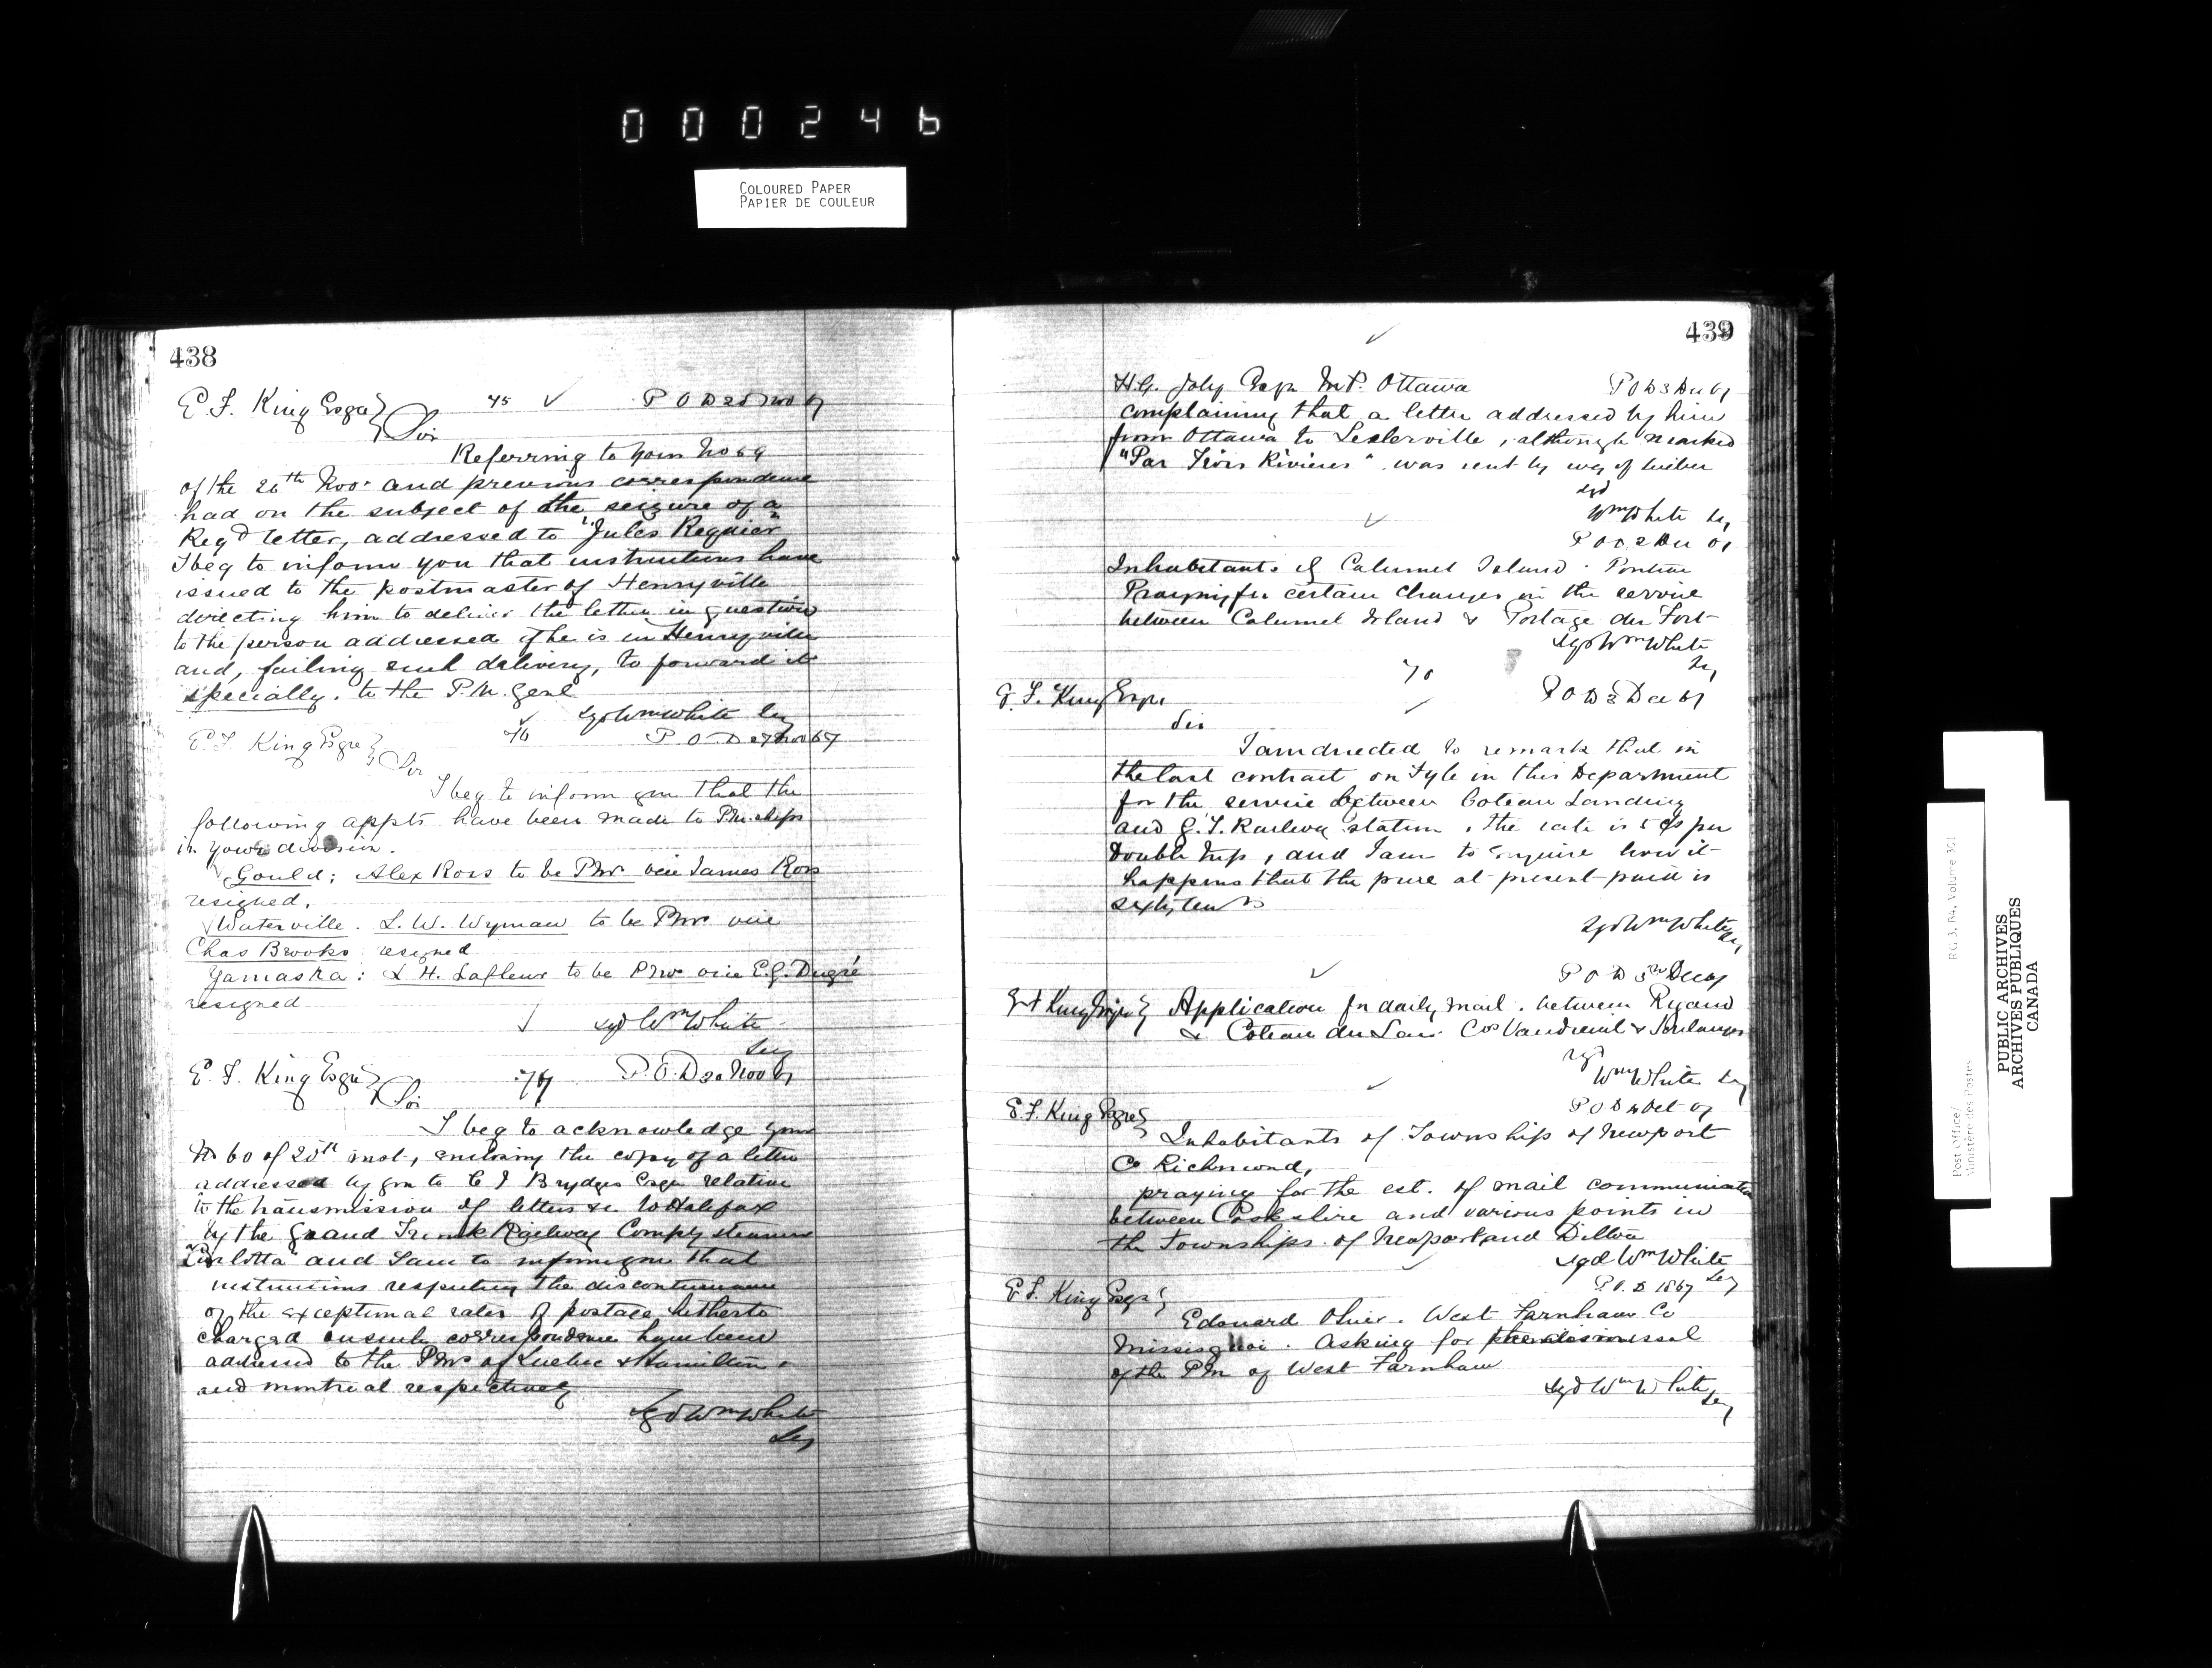 000246
COLOURED PAPER
PAPIER DE COULEUR
438
E. F. King Esqre 75 ✓ P O D Nov 67
Sir
Referring to your No 64
of the 26th Nov. and previous correspondence
had on the subject of the seizure of a
Regd letter, addressed to "Jules Regnier"
I beg to inform you that instructions have
issued to the postmaster of Henryville
directing him to deliver the letter in question
to the person addressed if he is in Henryville
and, failing such delivery, to forward it
specially. to the P.M. Genl
Sgd Wm White Sey
E. F. King Esqre 76 ✓ P. O. D 27 Nov 67
Sir
I beg to inform you that the
following appts have been made to Pm.ships
in your division.
Gould; Alex Ross to be Pmr vice James Ross
resigned.
Waterville. L. W. Wyman to be Pmr vice
Chas Brooks resigned
Yamaska: L H. Lafleur to be Pmr vice E.G. Dugré
resigned
Sgd Wm White
Sey
E. F. King Esqre 77 P. O. D 30 Nov 67
Sir
I beg to acknowledge your
No 60 of 25th inst, enclosing the copy of a letter
addressed by you to C J Brydges Esqr relative
to the transmission of letters &c to Halifax
by the Grand Trunk Railway Compy steamer
"Carlotta" and I am to inform you that
instructions respecting the discontinuance
of the exceptional rates of postage hitherto
charged on such correspondence have been
addressed to the Pmrs of Quebec & Hamilton
and Montreal respectively
Sgd Wm White
Sey
439
H.G. Joly Esqr M.P. Ottawa P O D 3 Dec 67
complaining that a letter addressed by him
from Ottawa to Leclerville, although marked
"Par Trois Rivieres" was sent by way of Quebec
Sgd
Wm White Sey
P O D 2 Dec 67
Inhabitants of Calumet Island. Pontiac
Praying for certain changes in the service
between Calumet Island & Portage du Fort
Sgd Wm White
Sey
78
E. F. King Esqr. P O D 3 Dec 67
Sir
I am directed to remark that in
the last contract on fyle in this Department
for the service between Coteau Landing
and G.T. Railway station, the rate is 50 cts per
Double trip, and I am to enquire how it
happens that the price at present paid is
sixty cents
Sgd Wm White
Sey
P O D 3rd Dec 67
E F King Esqre Application for daily mail. between Rigaud
& Coteau du Lac. Cos Vaudreuil & Soulanges
Sgd
Wm White Sey
P O D 4 Oct 67
E. F. King Esqre
Inhabitants of Township of Newport
Co Richmond,
praying for the est. of mail communication
between Cookshire and various points in
the Townships of Newport and Ditton
Sgd Wm White
Sey
P. O. D 1867
E. F. King Esqr
Edouard Olivier. West Farnham Co
Missisquoi. Asking for the dismissal
of the Pm of West Farnham
Sgd Wm White
Sey
Post Office/ RG 3, B4, Volume 391
Ministère des Postes
PUBLIC ARCHIVES
ARCHIVES PUBLIQUES
CANADA